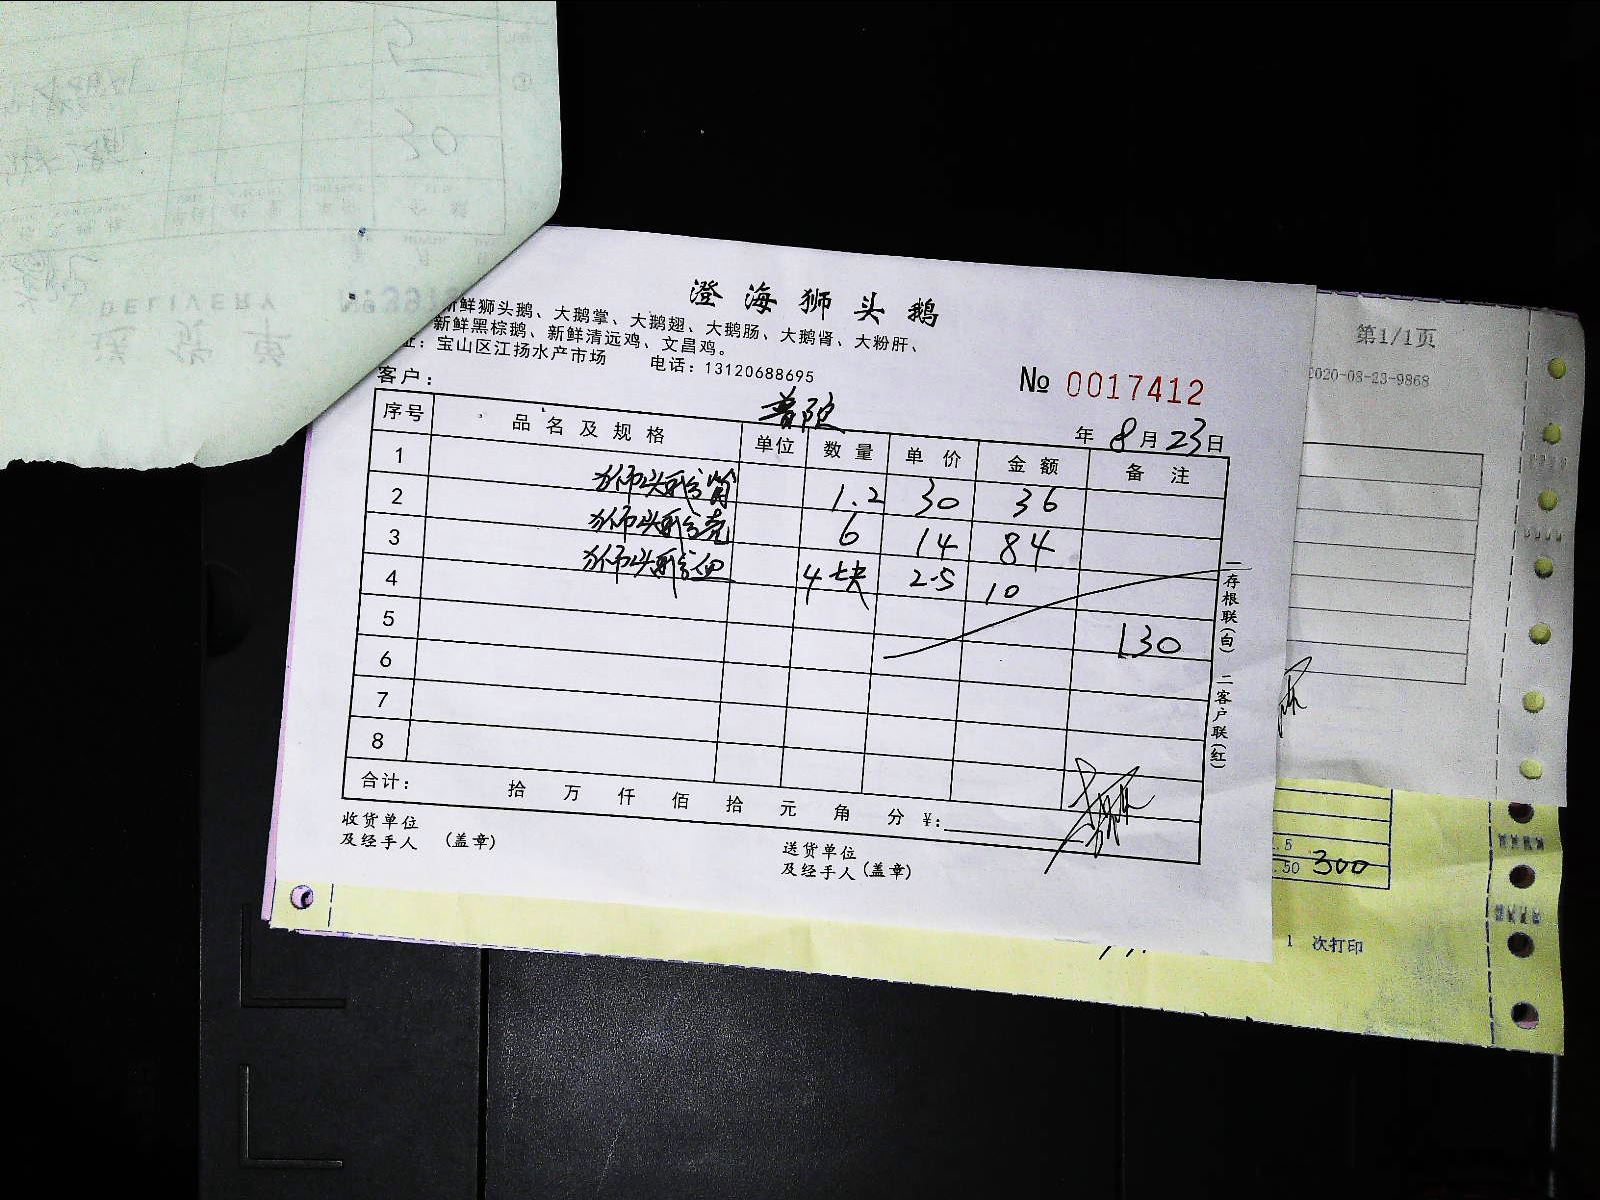 澄海狮头鹅
新鲜狮头鹅、大鹅掌、大鹅翅、大鹅肠、大鹅肾、大粉肝、
新鲜黑棕鹅、新鲜清远鸡、文昌鸡。
址：宝山区江扬水产市场 电话：13120688695
客户： 普陀
№ 0017412
年 8月23日
序号 品名及规格 单位 数量 单价 金额 备注
1 狮头鹅肾 1.2 30 36
2 狮头鹅壳 6 14 84
3 狮头鹅血 4块 2.5 10
4
5 130
6
7
8
合计： 拾 万 仟 佰 拾 元 角 分 ¥:
收货单位
及经手人 (盖章)
送货单位
及经手人(盖章)
一存根联(白) 二客户联(红)
第1/1页
2020-08-23-9868
.5
.50 300
1 次打印
DELIVERY
送货单